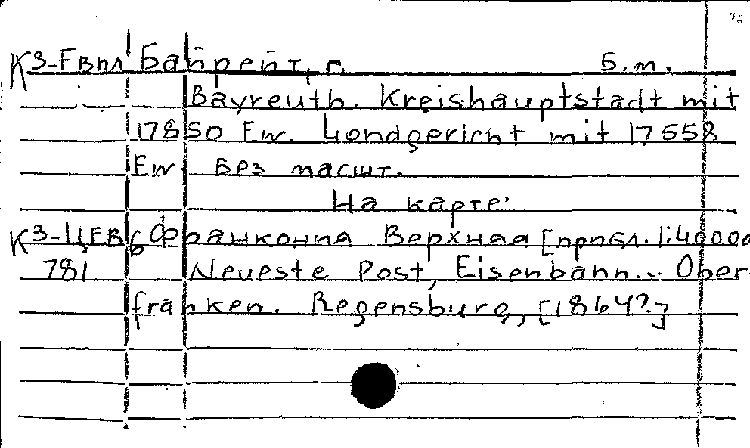 КЗ-Евпл Байрейт, г. Б.м.
Bayreuth. Kreishauptstadt mit
17850 Ew. Londgericht mit 17558
Ew Без масшт.
На карте:
КЗ-ЦЕВ/6 Франкония Верхняя [прибл. 1:40000
781 Neueste Post, Eisenbahn... Ober
franken. Regensburg, [1864?]